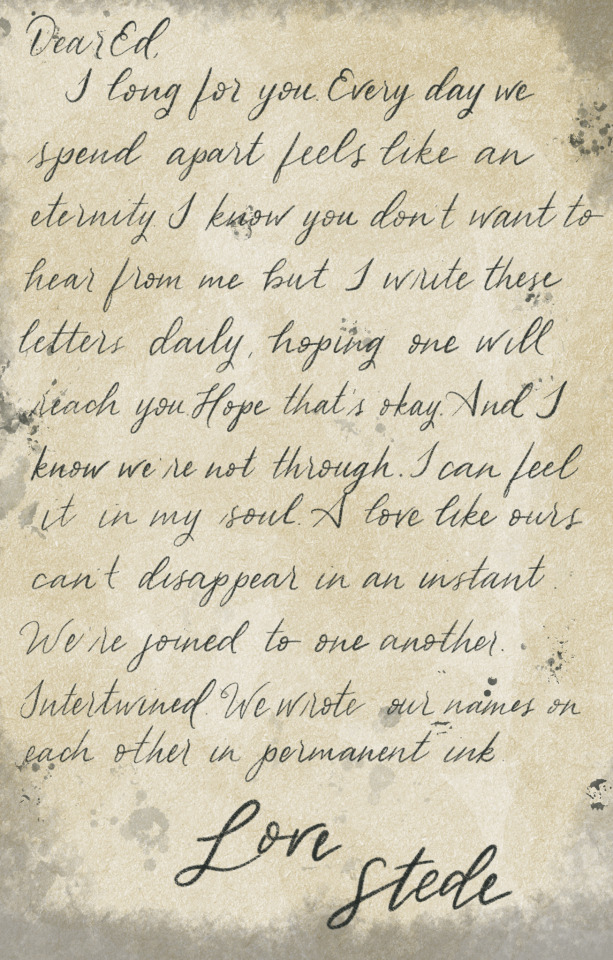 Dear Ed,
I long for you. Every day we
spend apart feels like an
eternity. I know you don't want to
hear from me but I write these
letters daily, hoping one will
reach you. Hope that's okay. And I
know we're not through. I can feel
it in my soul. A love like ours
can't disappear in an instant.
We're joined to one another.
Intertwined. We wrote our names on
each other in permanent ink
Love
Stede